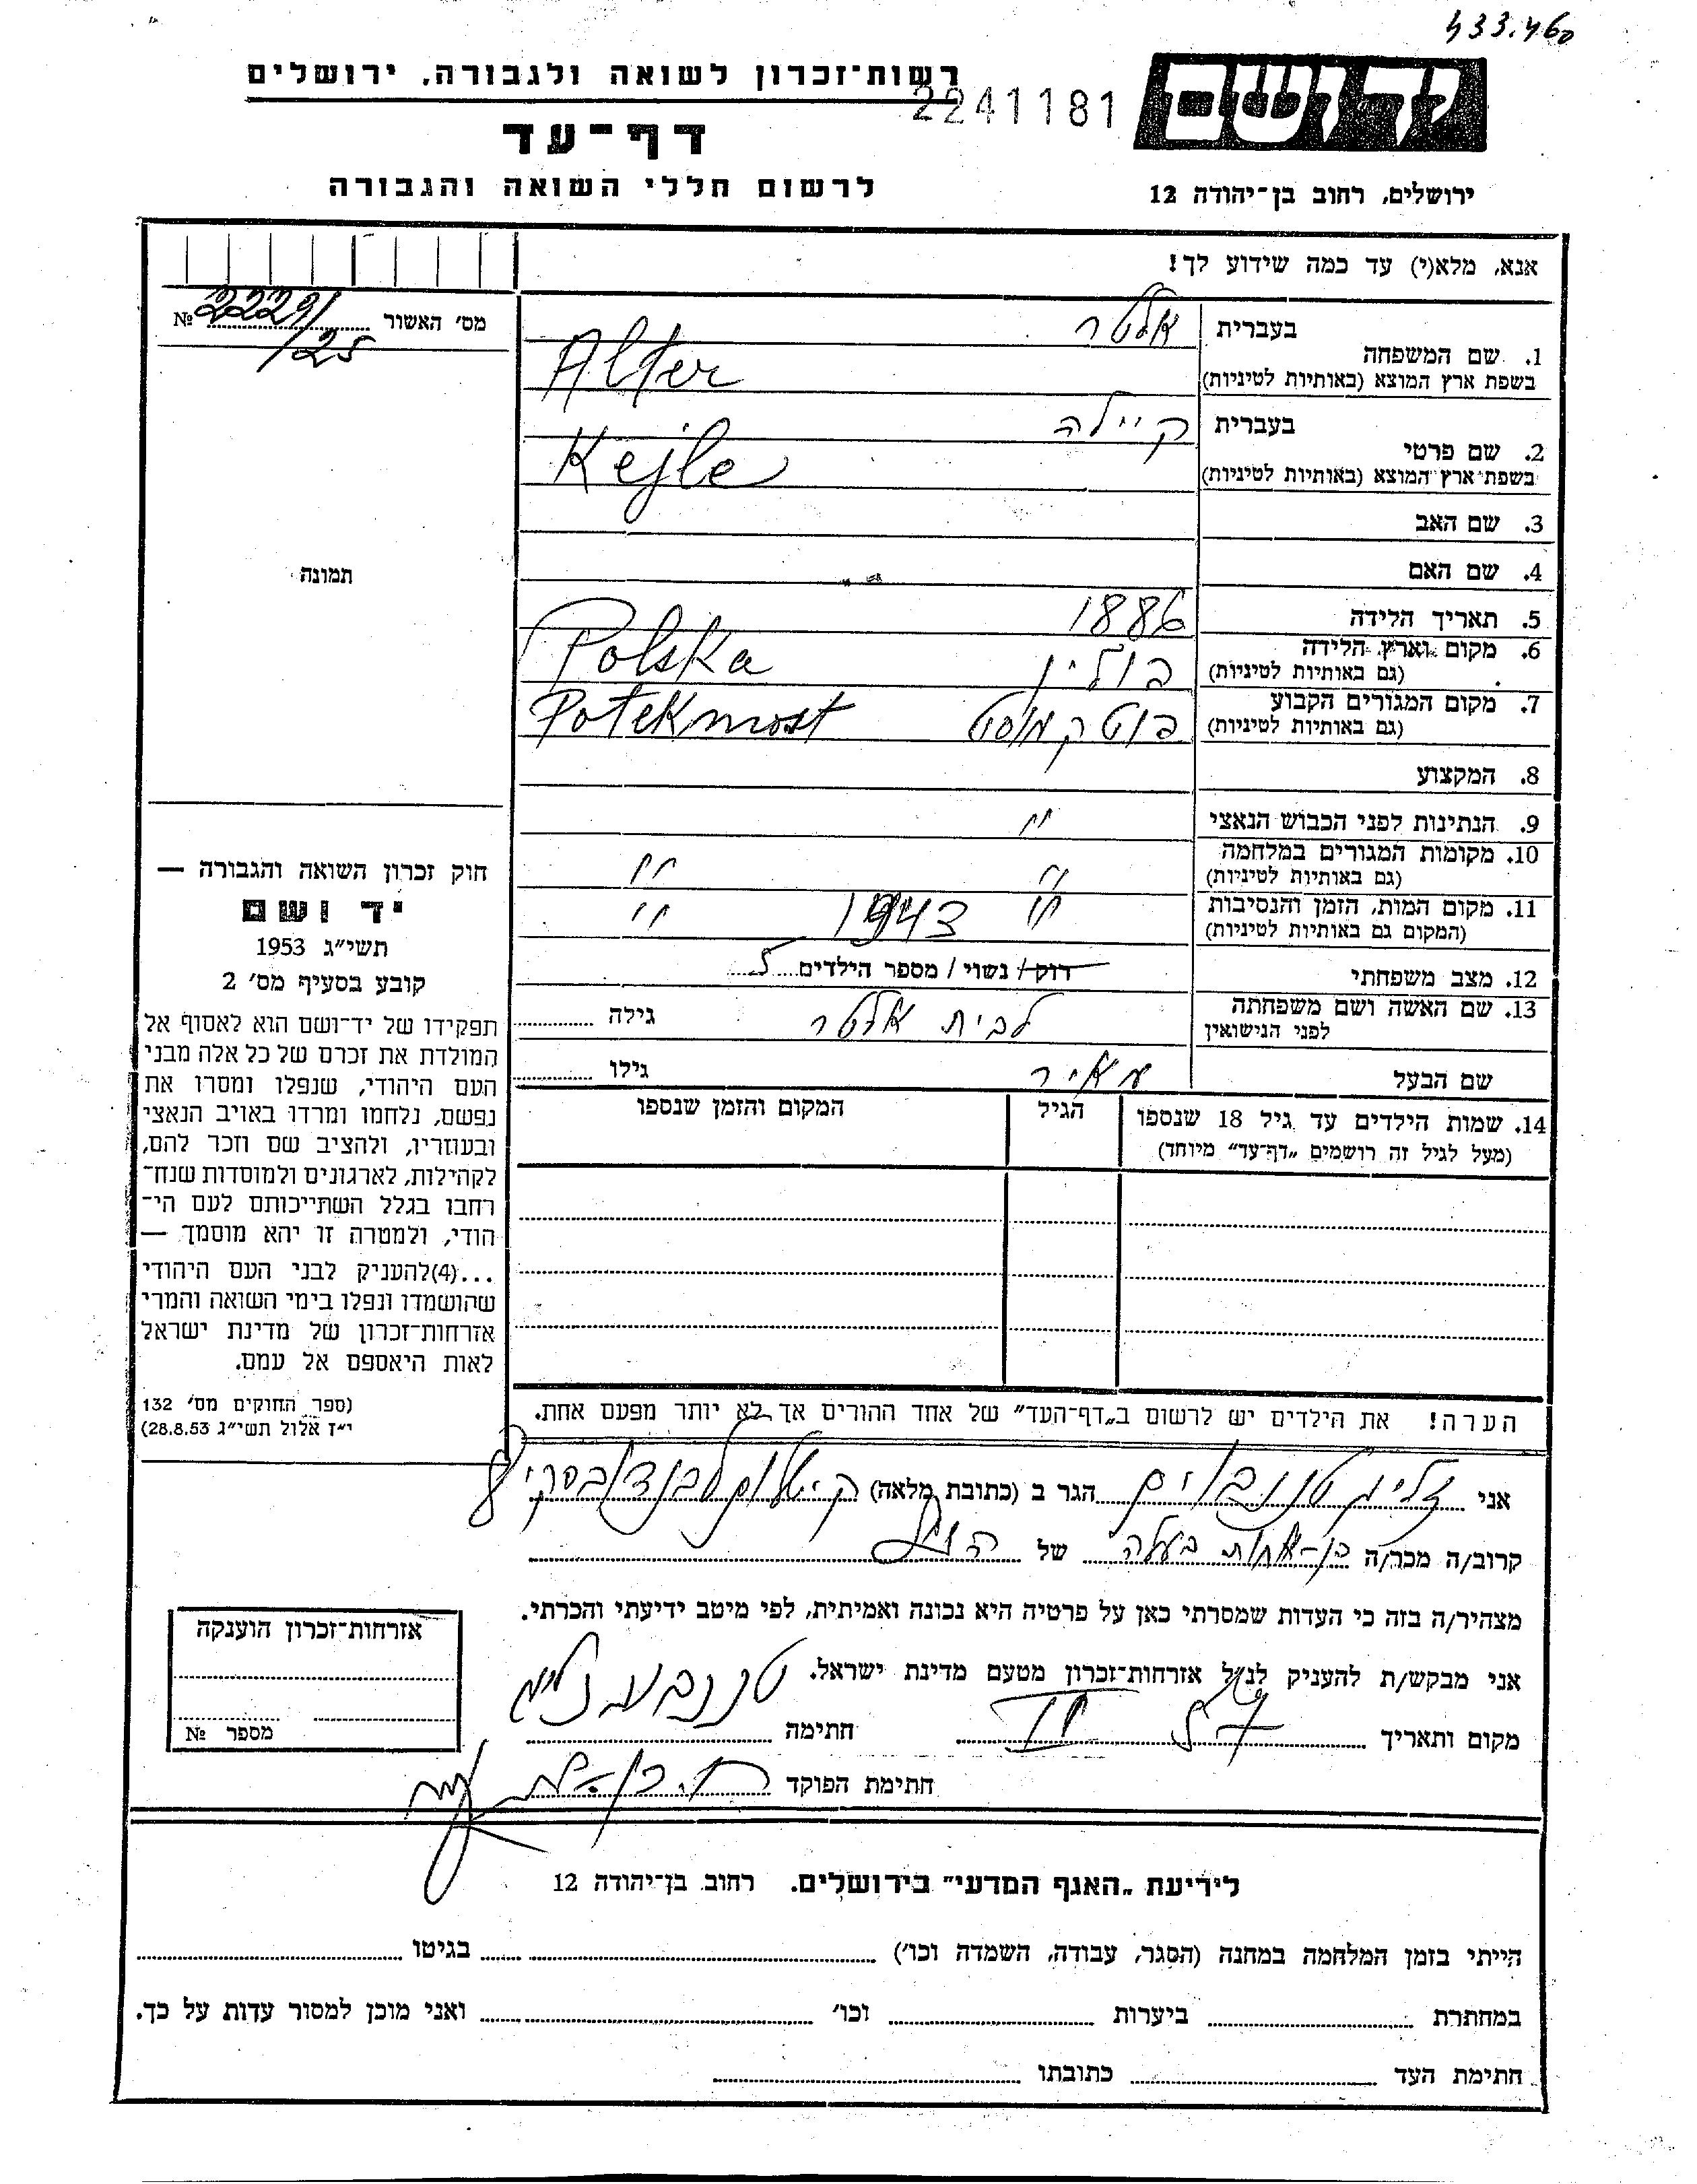 433.460
רשות־זכרון לשואה ולגבורה, ירושלים
2241181
יד ושם
דף־עד
לרשום חללי השואה והגבורה
ירושלים, רחוב בן־יהודה 12
אנא, מלא(י) עד כמה שידוע לך!
מס׳ האשור № 22291/25
תמונה
1. שם המשפחה
בעברית אלטר
בשפת ארץ המוצא (באותיות לטיניות) Alter
2. שם פרטי
בעברית קיילה
בשפת ארץ המוצא (באותיות לטיניות) Kejle
3. שם האב
4. שם האם
5. תאריך הלידה 1886
6. מקום וארץ הלידה פולין Polska
(גם באותיות לטיניות)
7. מקום המגורים הקבוע פוטקמוסט Potekmost
(גם באותיות לטיניות)
8. המקצוע
9. הנתינות לפני הכבוש הנאצי "
10. מקומות המגורים במלחמה " "
(גם באותיות לטיניות)
11. מקום המות, הזמן והנסיבות " 1943 "
(המקום גם באותיות לטיניות)
12. מצב משפחתי רוק / נשוי / מספר הילדים 5
13. שם האשה ושם משפחתה לבית אלטר גילה
לפני הנישואין
שם הבעל מאיר גילו
14. שמות הילדים עד גיל 18 שנספו הגיל המקום והזמן שנספו
(מעל לגיל זה רושמים „דף־עד״ מיוחד)
הערה! את הילדים יש לרשום ב„דף־העד״ של אחד ההורים אך לא יותר מפעם אחת.
חוק זכרון השואה והגבורה —
יד ושם
תשי״ג 1953
קובע בסעיף מס׳ 2
תפקידו של יד־ושם הוא לאסוף אל
המולדת את זכרם של כל אלה מבני
העם היהודי, שנפלו ומסרו את
נפשם, נלחמו ומרדו באויב הנאצי
ובעוזריו, ולהציב שם וזכר להם,
לקהילות, לארגונים ולמוסדות שנח־
רבו בגלל השתייכותם לעם הי־
הודי, ולמטרה זו יהא מוסמך —
...(4)להעניק לבני העם היהודי
שהושמדו ונפלו בימי השואה והמרי
אזרחות־זכרון של מדינת ישראל
לאות היאספם אל עמם.
(ספר החוקים מס׳ 132
י״ז אלול תשי״ג 28.8.53)
אני זליג טננבוים הגר ב (כתובת מלאה)
קרוב/ה מכר/ה בן־אחות בעלה של
מצהיר/ה בזה כי העדות שמסרתי כאן על פרטיה היא נכונה ואמיתית, לפי מיטב ידיעתי והכרתי.
אני מבקש/ת להעניק לנ״ל אזרחות־זכרון מטעם מדינת ישראל.
מקום ותאריך חתימה
חתימת הפוקד
אזרחות־זכרון הוענקה
מספר №
לידיעת „האגף המדעי״ בירושלים. רחוב בן־יהודה 12
הייתי בזמן המלחמה במחנה (הסגר, עבודה, השמדה וכו׳) בגיטו
במחתרת ביערות וכו׳ ואני מוכן למסור עדות על כך.
חתימת העד כתובתו